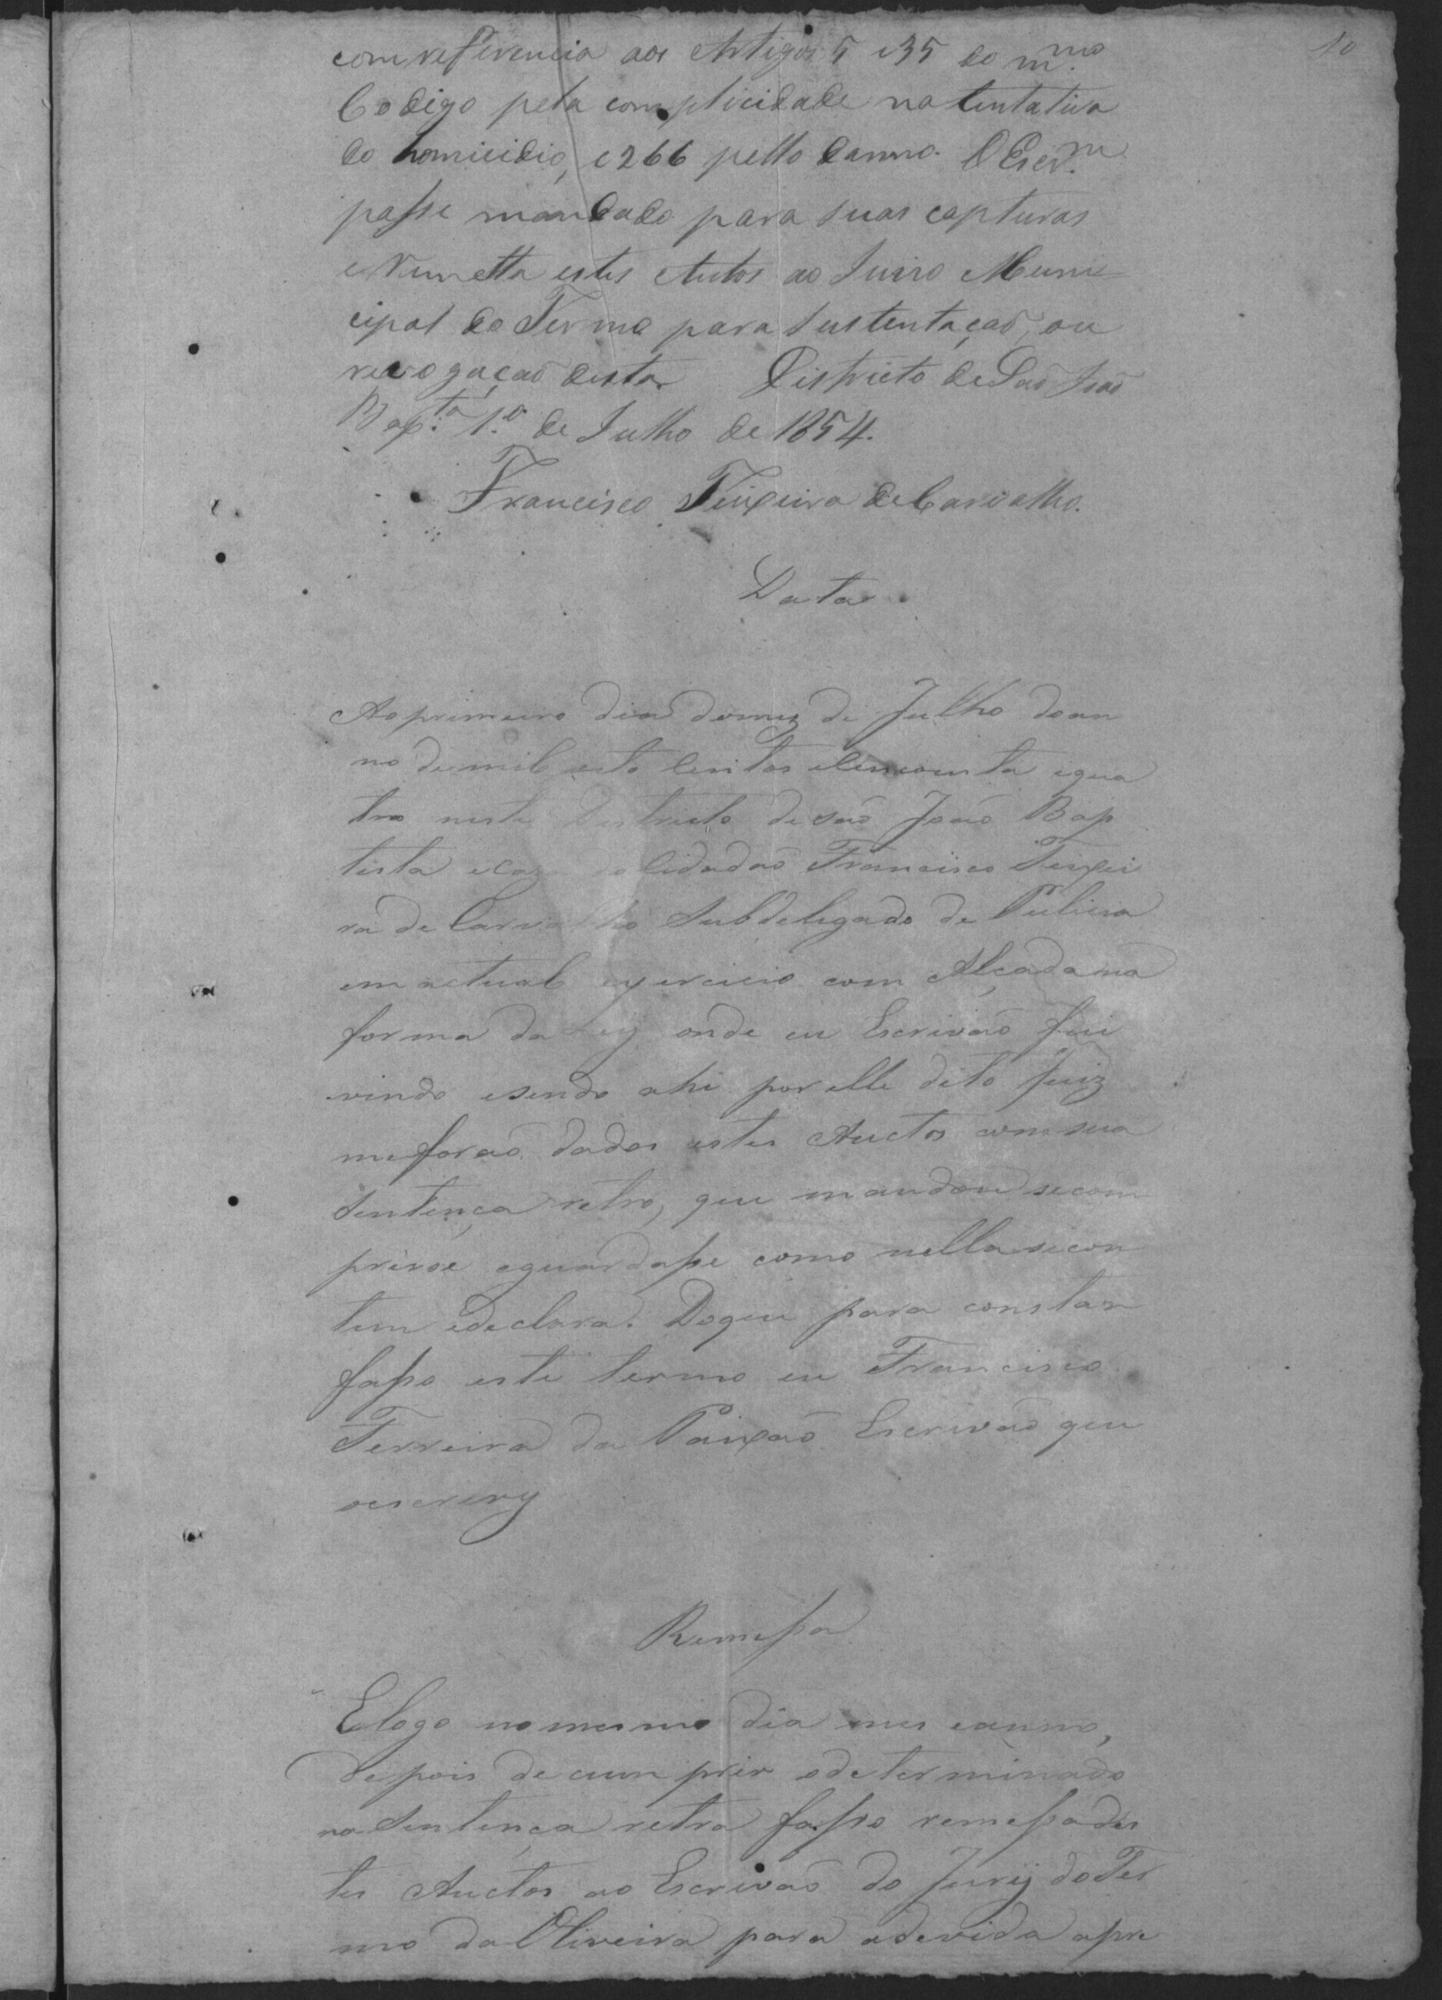 10
com referencia aos Artigos 5 e 35 do m.mo
Codigo pela complicidade na tentativa
do homicidio, e 266 pello danno. O Escr.m
passe mandado para suas capturas
e remetta estes Autos ao Juizo Muni
cipal do Termo para sustentação, ou
revogação desta. Districto de São João
Bap.ta 1.o de Julho de 1854.
Francisco Teixeira de Carvalho.
Data
Ao primeiro dia do mez de Julho do an
no de mil oito centos e cincoenta e qua
tro neste Districto de São João Bap
tista e caza do Cidadão Francisco Teixei
ra de Carvalho Subdelegado de Pulicia
em actual exercicio com Alçada na
forma da Ley onde eu Escrivão fui
vindo e sendo ahi por elle dito Juiz
me forão dados estes Auctos com sua
Sentença retro, que mandou se com
prise e guardasse como nella se con
tem e declara. Do que para constar
fasso este termo eu Francisco
Ferreira da Paixão Escrivão que
o escrevy
Remessa
E logo no mesmo dia mes e anno,
depois de cumprir o determinado
na Sentença retra fasso remessa des
tes Auctos ao Escrivão do Jury do Ter
mo da Oliveira para a devida apre